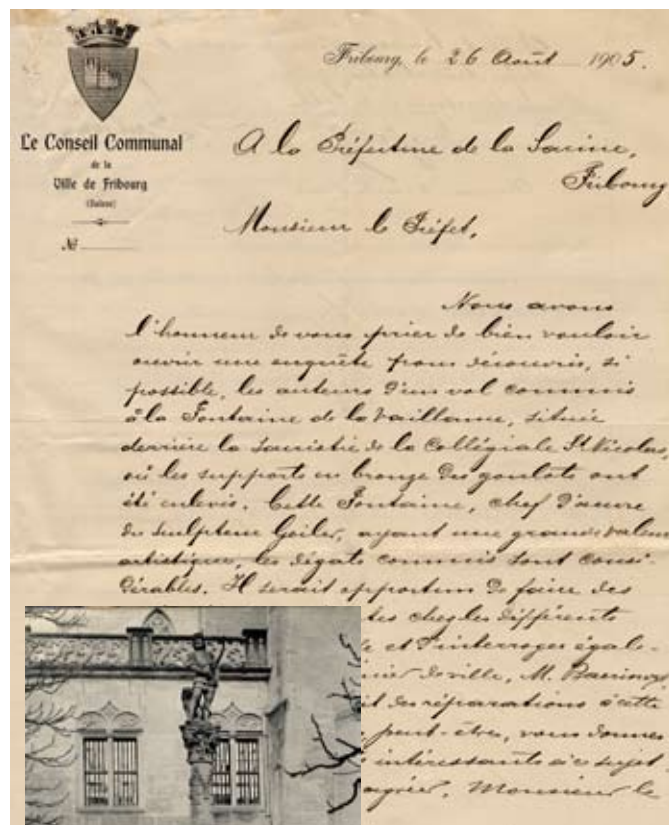 Le Conseil Communal
de la
Ville de Fribourg
(Suisse)
№
Fribourg, le 26 Août 1905.
A la Préfecture de la Sarine,
Fribourg
Monsieur le Préfet,
Nous avons
l'honneur de vous prier de bien vouloir
ouvrir une enquête pour découvrir, si
possible, les auteurs d'un vol commis
à la Fontaine de la Vaillance, située
derrière la sacristie de la Collégiale St Nicolas,
où les supports en bronze des goulots ont
été enlevés. Cette Fontaine, chef d'œuvre
du sculpteur Geiler, ayant une grande valeur
artistique, les dégâts commis sont consi-
dérables. Il serait opportun de faire des
tes chez les différents
et d'interroger égale-
de ville, M.
it des réparations à cette
peut-être, vous donner
intéressants à ce sujet.
agréer, Monsieur le